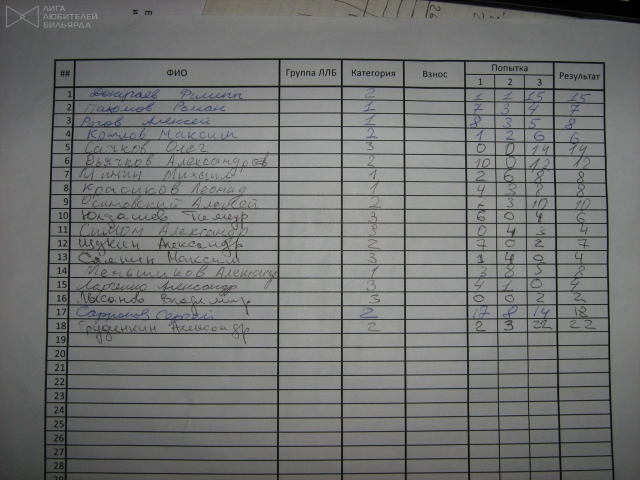 ЛИГА
ЛЮБИТЕЛЕЙ
БИЛЬЯРДА
## ФИО Группа ЛЛБ Категория Взнос Попытка Результат
1 2 3
1 Филипп 2 1 1 15 15
2 Пахомов Роман 1 7 3 4 7
3 Рогов Алексей 1 8 3 5 8
4 Козлов Максим 2 1 2 6 6
5 Сачков Олег 3 0 0 14 14
6 Дьячков Александров 2 10 0 12 12
7 Минин Михаил 1 2 6 8 8
8 Красиков Леонид 1 4 3 8 8
9 Осиновский Алексей 2 3 10 10
10 Тимур 3 6 0 4 6
11 Александр 3 0 4 3 4
12 Щукин Александр 2 7 0 2 7
13 Максим 3 1 4 0 4
14 Меньшиков Александр 1 3 8 5 8
15 Ларченко Александр 3 4 1 0 4
16 Владимир 3 0 0 2 2
17 Сергей 2 17 8 14
18 Груденкин Александр 2 2 3 22 22
19
20
21
22
23
24
25
26
27
28